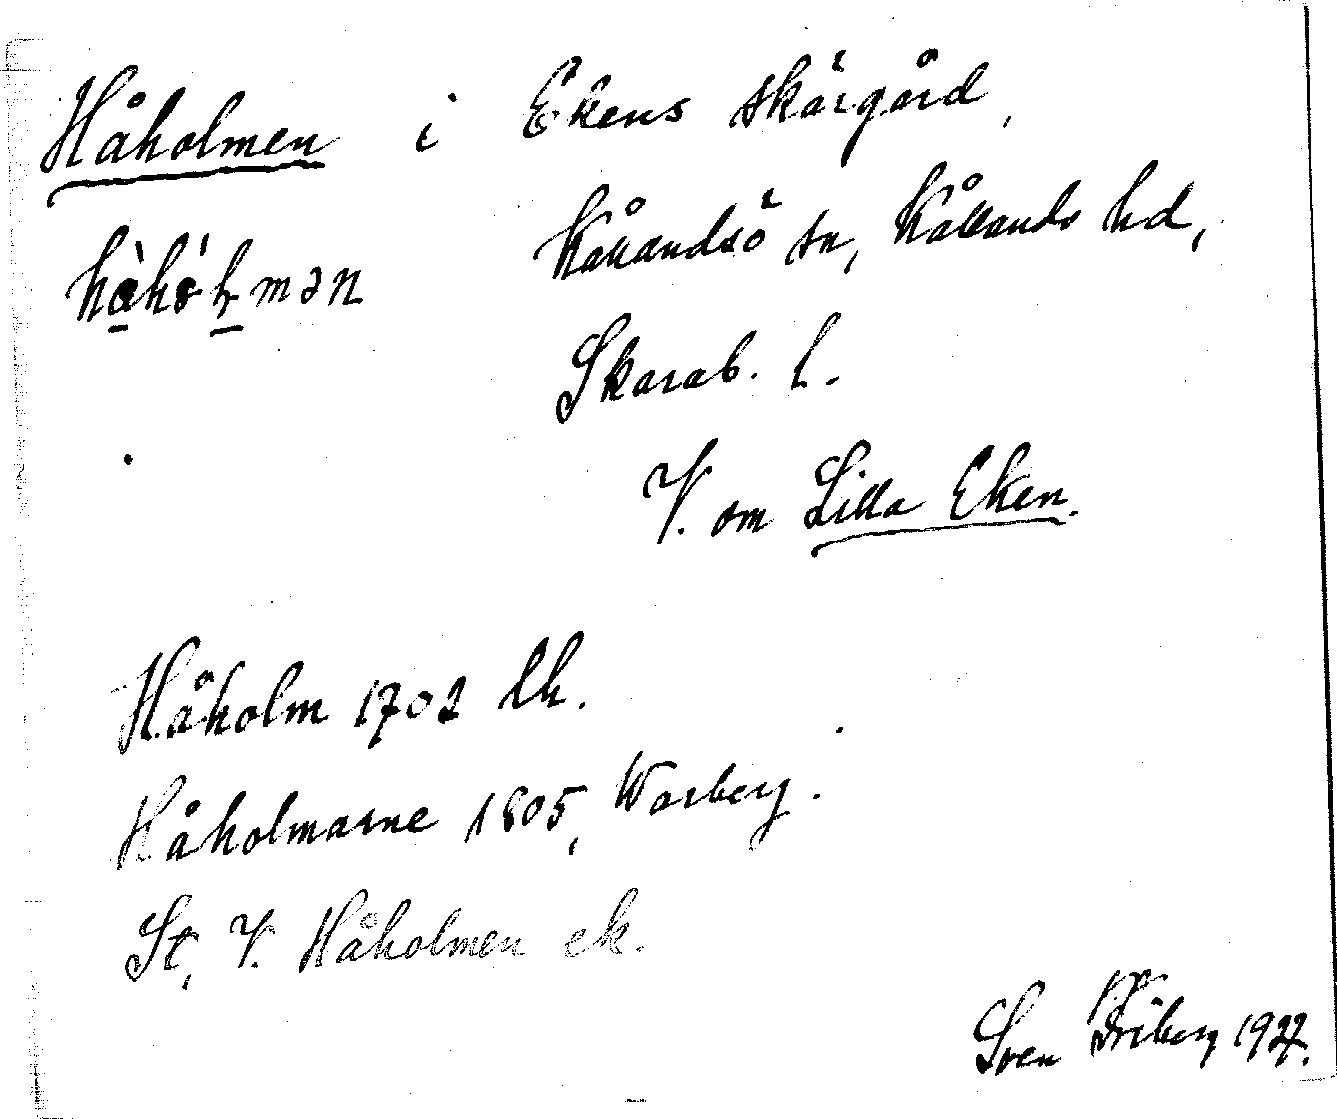 Håholmen i Ekens skärgård,
Kållandsö sn, Kållands hd,
Skarab. l.
V. om Lilla Eken.
Håholm 1702 lk.
Håholmarne 1805, Warberg.
St, V. Håholmen ek.
Sven Friberg 1927.